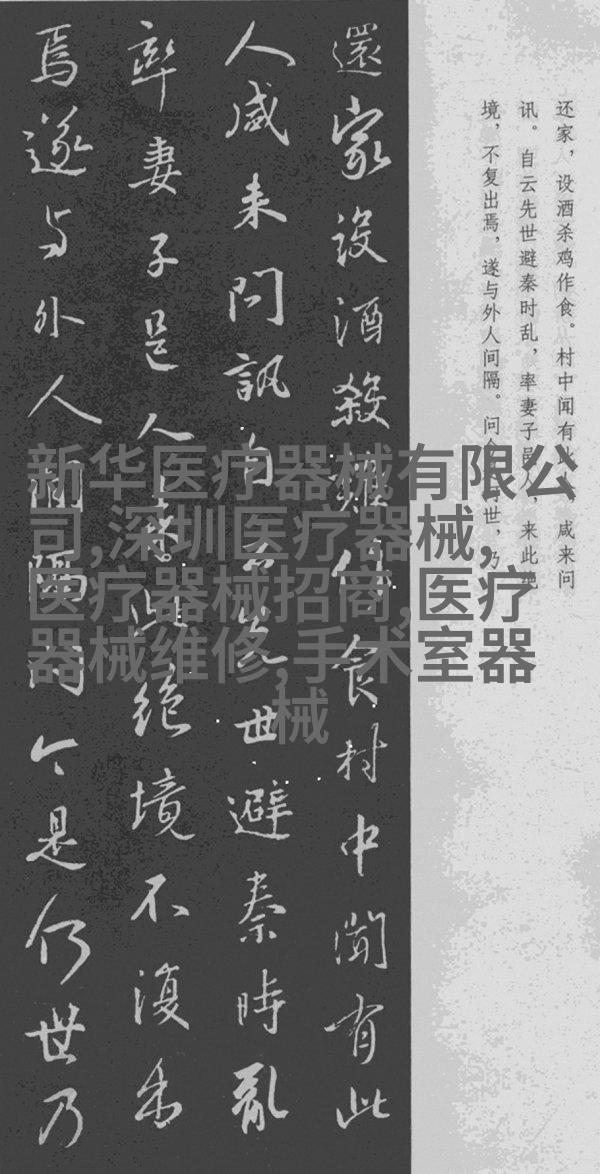 还家，设酒杀鸡作食。村中闻有此人，咸来问
讯。自云先世避秦时乱，率妻子邑人，来此绝
境，不复出焉，遂与外人间隔。问今是何世，乃
還家設酒殺雞作食村中聞有此
人咸来問訊自云先世避秦時亂
率妻子邑人来此绝境不復出
焉遂与外人間隔問今是何世乃
新华医疗器械有限公
司,深圳医疗器械,
医疗器械招商,医疗
器械维修,手术室器
械